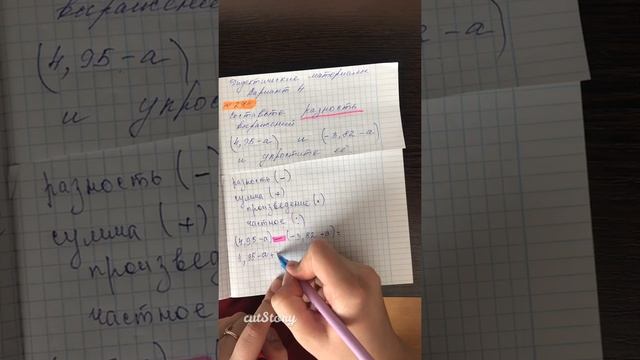 Дидактические материалы
Вариант 4
Составьте разность
выражений
(4,95-а) и (-3,82-а)
и упростите её
разность (-)
сумма (+)
произведение (·)
частное (:)
(4,95-а)-(-3,82+а)=
4,95-а+
cutStory